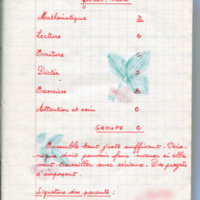 Mathématique B
Lecture C
Ecriture C
Dictée C
Exercice C
Attention et soin C
GROUPE C
Ensemble tout juste suffisant. Véro-
nique doit pouvoir faire mieux si elle
veut travailler avec sérieux. Des progrès
s'imposent.
Signature des parents :